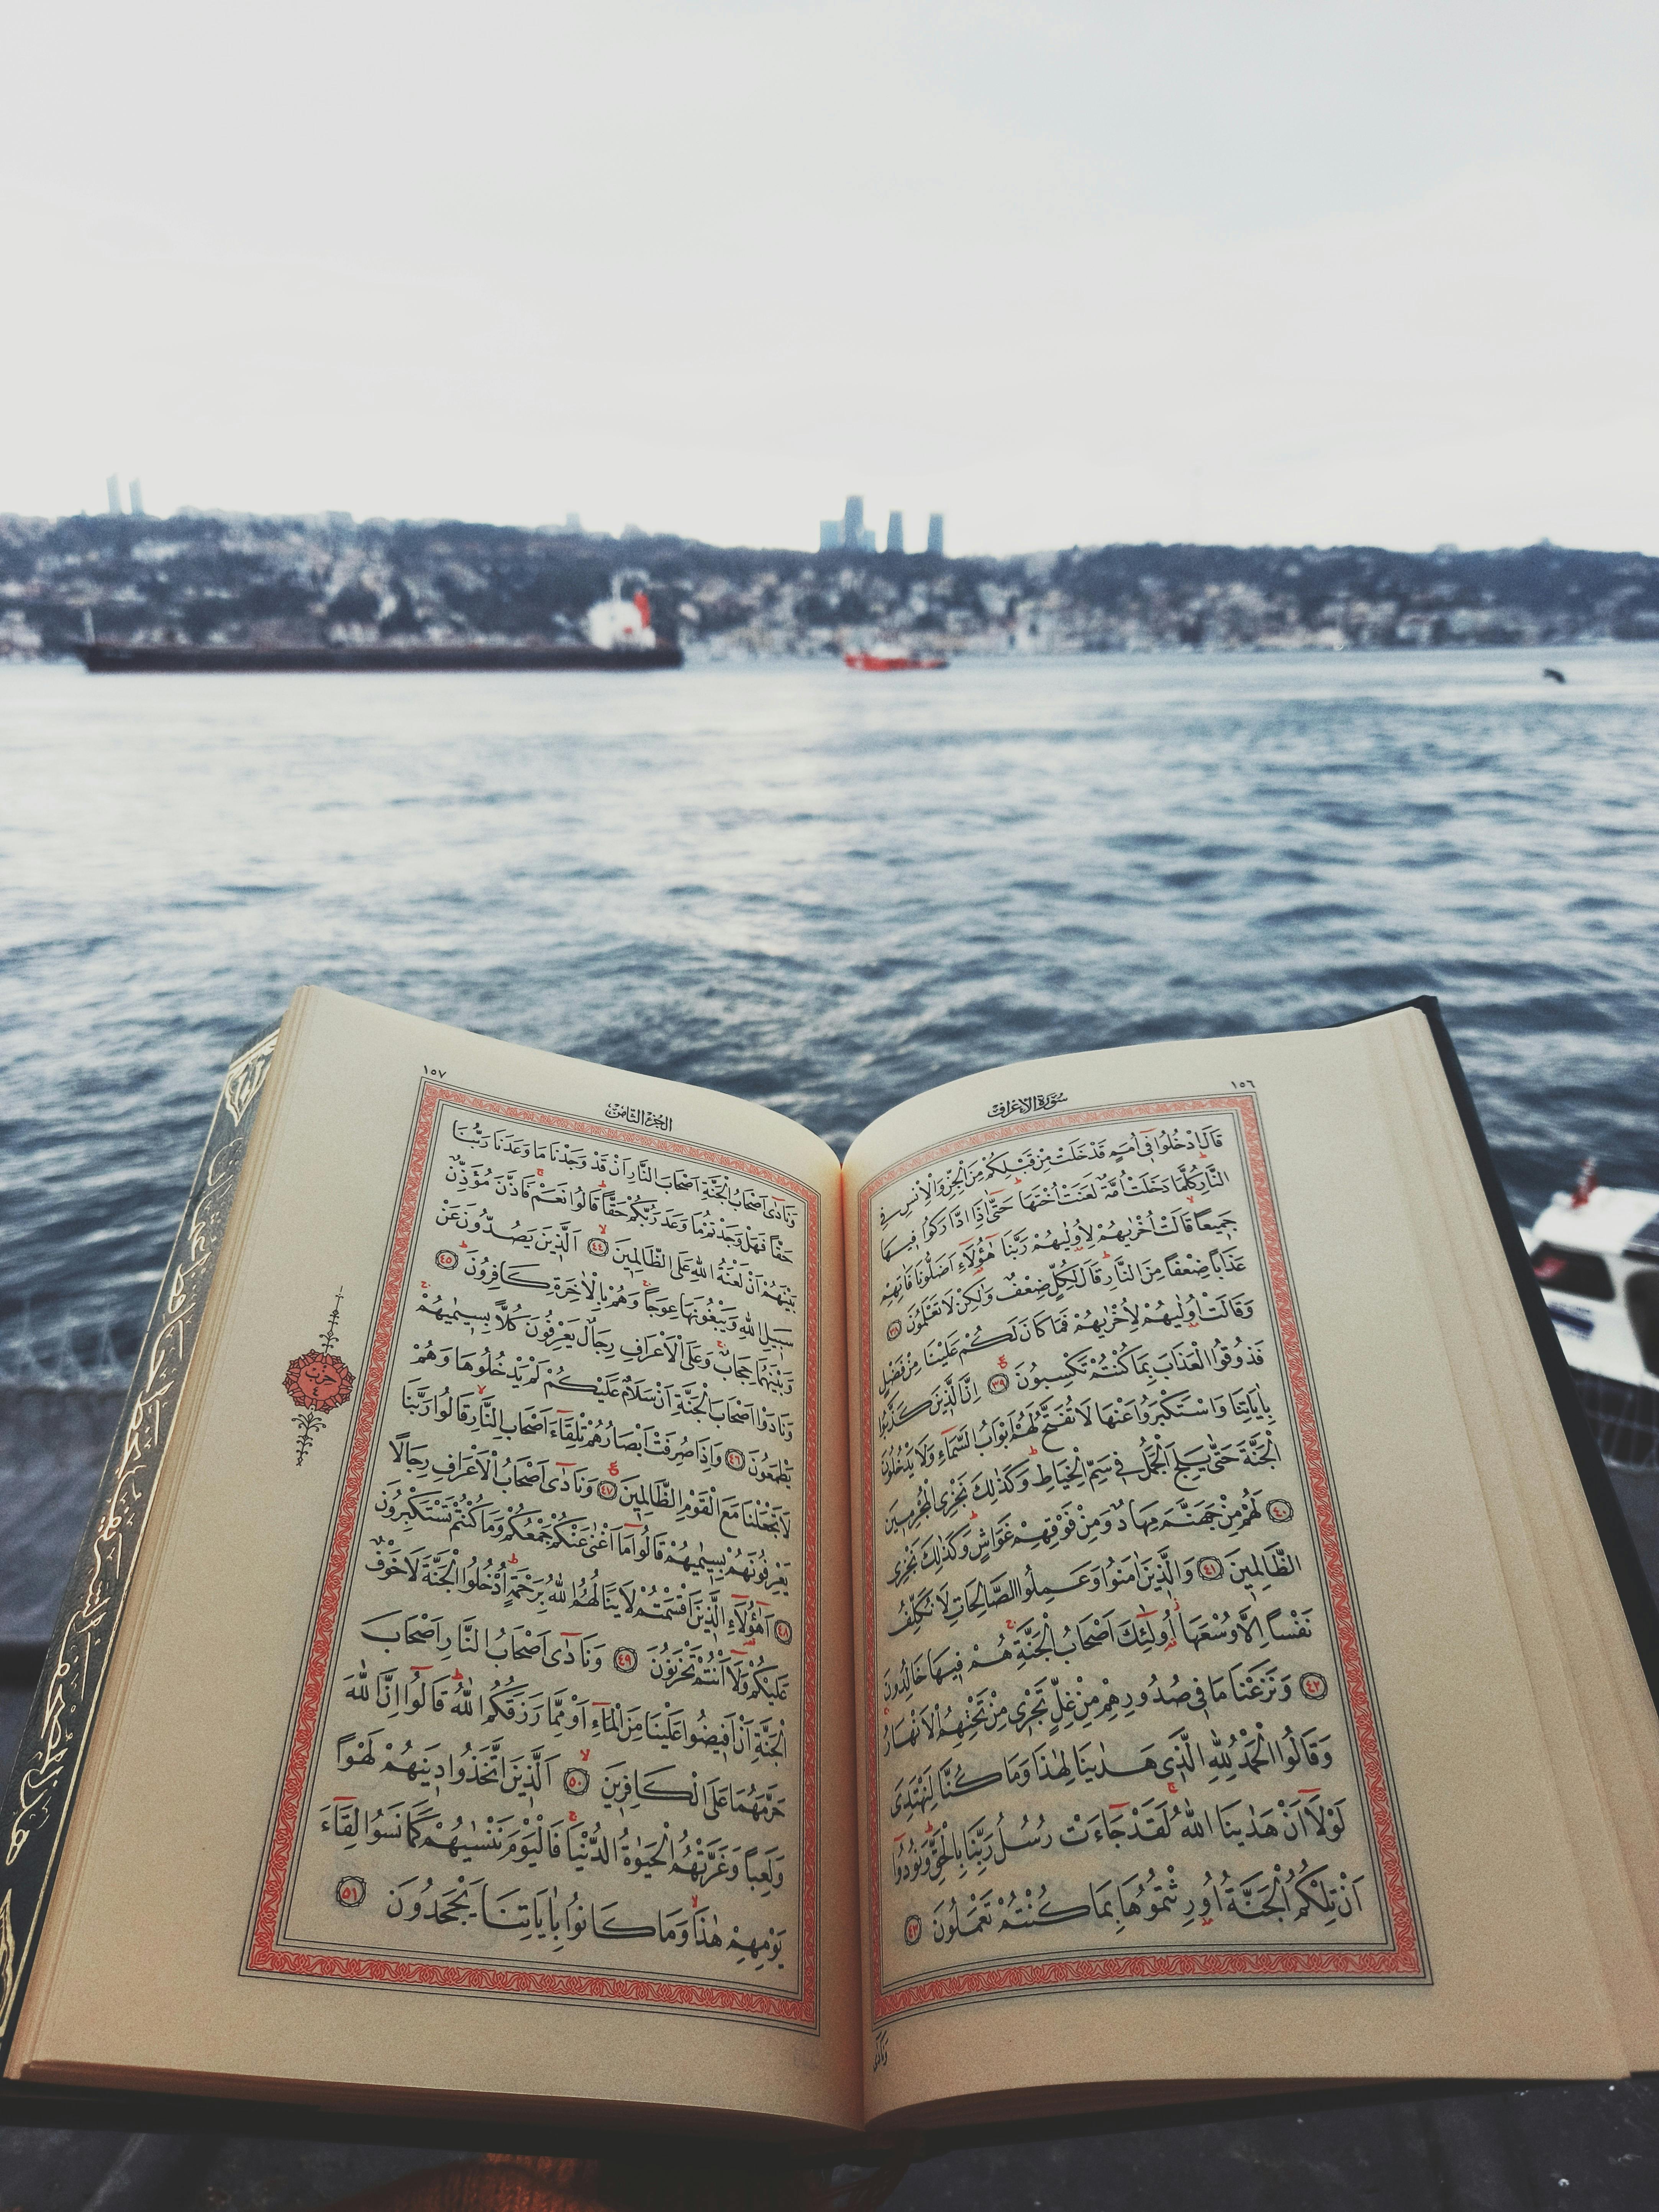 ١٥٦
سُورَةُ الْاَعْرَافِ
قَالَ ادْخُلُوا فٖٓي اُمَمٍ قَدْ خَلَتْ مِنْ قَبْلِكُمْ مِنَ الْجِنِّ وَالْاِنْسِ فِي
النَّارِ كُلَّمَا دَخَلَتْ اُمَّةٌ لَعَنَتْ اُخْتَهَا حَتّٰٓى اِذَا ادَّارَكُوا فٖيهَا
جَمٖيعاً قَالَتْ اُخْرٰيهُمْ لِاُو۫لٰيهُمْ رَبَّنَا هٰٓؤُ۬لَٓاءِ اَضَلُّونَا فَاٰتِهِمْ
عَذَاباً ضِعْفاً مِنَ النَّارِ قَالَ لِكُلٍّ ضِعْفٌ وَلٰكِنْ لَا تَعْلَمُونَ ٣٨
وَقَالَتْ اُو۫لٰيهُمْ لِاُخْرٰيهُمْ فَمَا كَانَ لَكُمْ عَلَيْنَا مِنْ فَضْلٍ
فَذُوقُوا الْعَذَابَ بِمَا كُنْتُمْ تَكْسِبُونَ ٣٩ اِنَّ الَّذٖينَ كَذَّبُوا
بِاٰيَاتِنَا وَاسْتَكْبَرُوا عَنْهَا لَا تُفَتَّحُ لَهُمْ اَبْوَابُ السَّمَٓاءِ وَلَا يَدْخُلُونَ
الْجَنَّةَ حَتّٰى يَلِجَ الْجَمَلُ فٖي سَمِّ الْخِيَاطِ وَكَذٰلِكَ نَجْزِي الْمُجْرِمٖينَ
٤٠ لَهُمْ مِنْ جَهَنَّمَ مِهَادٌ وَمِنْ فَوْقِهِمْ غَوَاشٍ وَكَذٰلِكَ نَجْزِي
الظَّالِمٖينَ ٤١ وَالَّذٖينَ اٰمَنُوا وَعَمِلُوا الصَّالِحَاتِ لَا نُكَلِّفُ
نَفْساً اِلَّا وُسْعَهَا اُو۬لٰٓئِكَ اَصْحَابُ الْجَنَّةِ هُمْ فٖيهَا خَالِدُونَ
٤٢ وَنَزَعْنَا مَا فٖي صُدُورِهِمْ مِنْ غِلٍّ تَجْرٖي مِنْ تَحْتِهِمُ الْاَنْهَارُ
وَقَالُوا الْحَمْدُ لِلّٰهِ الَّذٖي هَدٰينَا لِهٰذَا وَمَا كُنَّا لِنَهْتَدِيَ
لَوْلَٓا اَنْ هَدٰينَا اللّٰهُ لَقَدْ جَٓاءَتْ رُسُلُ رَبِّنَا بِالْحَقِّ وَنُودُٓوا
اَنْ تِلْكُمُ الْجَنَّةُ اُو۫رِثْتُمُوهَا بِمَا كُنْتُمْ تَعْمَلُونَ ٤٣
وَنَادٰٓى
١٥٧
الجزء الثامن
وَنَادٰٓى اَصْحَابُ الْجَنَّةِ اَصْحَابَ النَّارِ اَنْ قَدْ وَجَدْنَا مَا وَعَدَنَا رَبُّنَا
حَقاًّ فَهَلْ وَجَدْتُمْ مَا وَعَدَ رَبُّكُمْ حَقاًّ قَالُوا نَعَمْ فَاَذَّنَ مُؤَذِّنٌ
بَيْنَهُمْ اَنْ لَعْنَةُ اللّٰهِ عَلَى الظَّالِمٖينَ ٤٤ اَلَّذٖينَ يَصُدُّونَ عَنْ
سَبٖيلِ اللّٰهِ وَيَبْغُونَهَا عِوَجاً وَهُمْ بِالْاٰخِرَةِ كَافِرُونَ ٤٥
وَبَيْنَهُمَا حِجَابٌ وَعَلَى الْاَعْرَافِ رِجَالٌ يَعْرِفُونَ كُلاًّ بِسٖيمٰيهُمْ
وَنَادَوْا اَصْحَابَ الْجَنَّةِ اَنْ سَلَامٌ عَلَيْكُمْ لَمْ يَدْخُلُوهَا وَهُمْ
يَطْمَعُونَ ٤٦ وَاِذَا صُرِفَتْ اَبْصَارُهُمْ تِلْقَٓاءَ اَصْحَابِ النَّارِ قَالُوا رَبَّنَا
لَا تَجْعَلْنَا مَعَ الْقَوْمِ الظَّالِمٖينَ ٤٧ وَنَادٰٓى اَصْحَابُ الْاَعْرَافِ رِجَالاً
يَعْرِفُونَهُمْ بِسٖيمٰيهُمْ قَالُوا مَٓا اَغْنٰى عَنْكُمْ جَمْعُكُمْ وَمَا كُنْتُمْ تَسْتَكْبِرُونَ
٤٨ اَهٰٓؤُ۬لَٓاءِ الَّذٖينَ اَقْسَمْتُمْ لَا يَنَالُهُمُ اللّٰهُ بِرَحْمَةٍ اُدْخُلُوا الْجَنَّةَ لَا خَوْفٌ
عَلَيْكُمْ وَلَٓا اَنْتُمْ تَحْزَنُونَ ٤٩ وَنَادٰٓى اَصْحَابُ النَّارِ اَصْحَابَ
الْجَنَّةِ اَنْ اَفٖيضُوا عَلَيْنَا مِنَ الْمَٓاءِ اَوْ مِمَّا رَزَقَكُمُ اللّٰهُ قَالُٓوا اِنَّ اللّٰهَ
حَرَّمَهُمَا عَلَى الْكَافِرٖينَ ٥٠ اَلَّذٖينَ اتَّخَذُوا دٖينَهُمْ لَهْواً
وَلَعِباً وَغَرَّتْهُمُ الْحَيٰوةُ الدُّنْيَا فَالْيَوْمَ نَنْسٰيهُمْ كَمَا نَسُوا لِقَٓاءَ
يَوْمِهِمْ هٰذَا وَمَا كَانُوا بِاٰيَاتِنَا يَجْحَدُونَ ٥١
حزب
٤